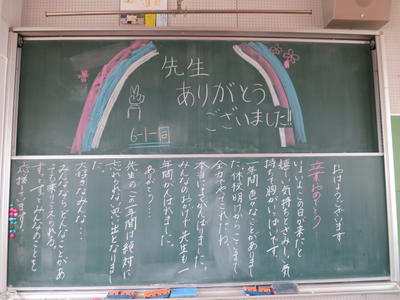 先生
ありがとう
ございました!!
6-1一同
おはようございます
卒業おめでとう
いよいよこの日が来たと
嬉しい気持ちとさみしい気
持ちで胸がいっぱいです。
一年間色々なことがありまし
た。休校明けからここまで
全力でやってこれたね。
本当によくがんばりました。
みんなのおかげで先生も一
年間がんばれました。
ありがとう…
先生のこの一年間は絶対に
忘れられない思い出となりまし
た。
大好きなみんな…
みんなならどんなことがあ
っても乗りこえられる。
ずーっとみんなのことを
応援してます。